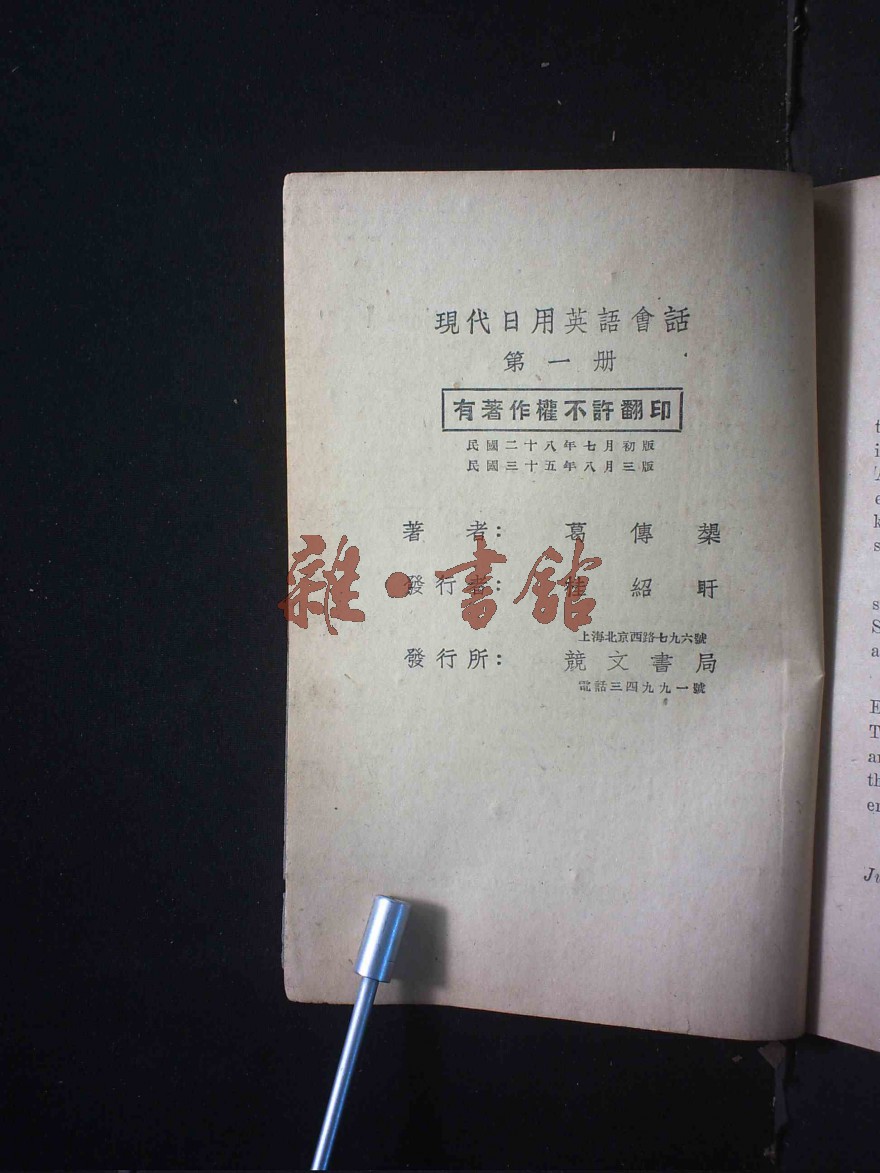 現代日用英語會話
第一册
有著作權不許翻印
民國二十八年七月初版
民國三十五年八月三版
著者：葛傳槼
發行者：桂紹盱
上海北京西路七九六號
發行所：競文書局
電話三四九九一號
雜·書館